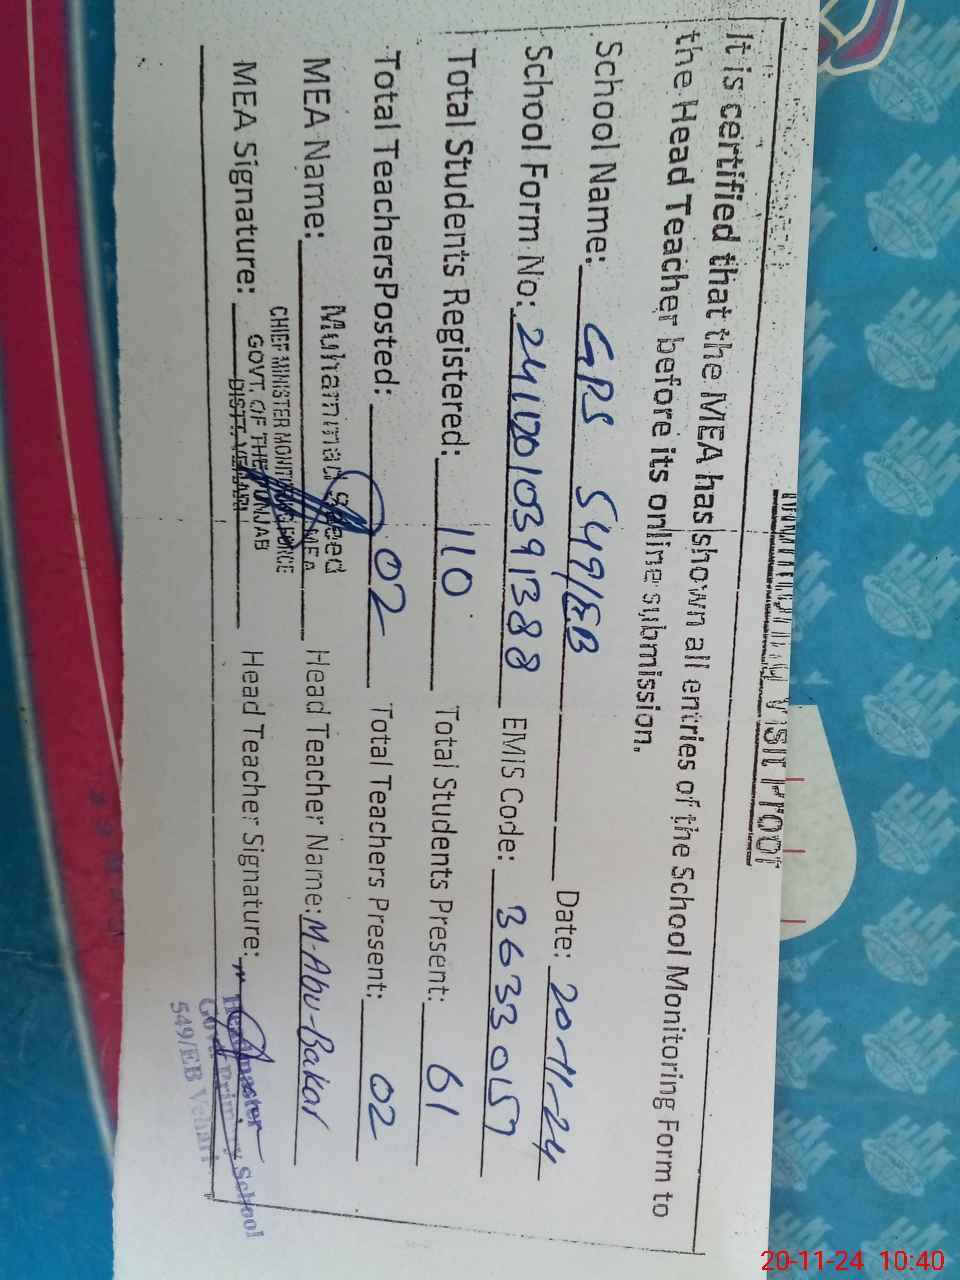 Monitoring Visit Proof
It is certified that the MEA has shown all entries of the School Monitoring Form to
the Head Teacher before its online submission.
School Name: GPS 549/EB Date: 20-11-24
School Form No: EMIS Code: 36330157
Total Students Registered: 110 Total Students Present: 61
Total TeachersPosted: 02 Total Teachers Present: 02
MEA Name: Muhammad Saeed Head Teacher Name: M-Abu-Bakar
MEA
CHIEF MINISTER MONITORING FORCE
GOVT. OF THE PUNJAB
DISTT. VEHARI
MEA Signature: Head Teacher Signature:
Headmaster
Govt. Primary School
549/EB Vehari
20-11-24 10:40